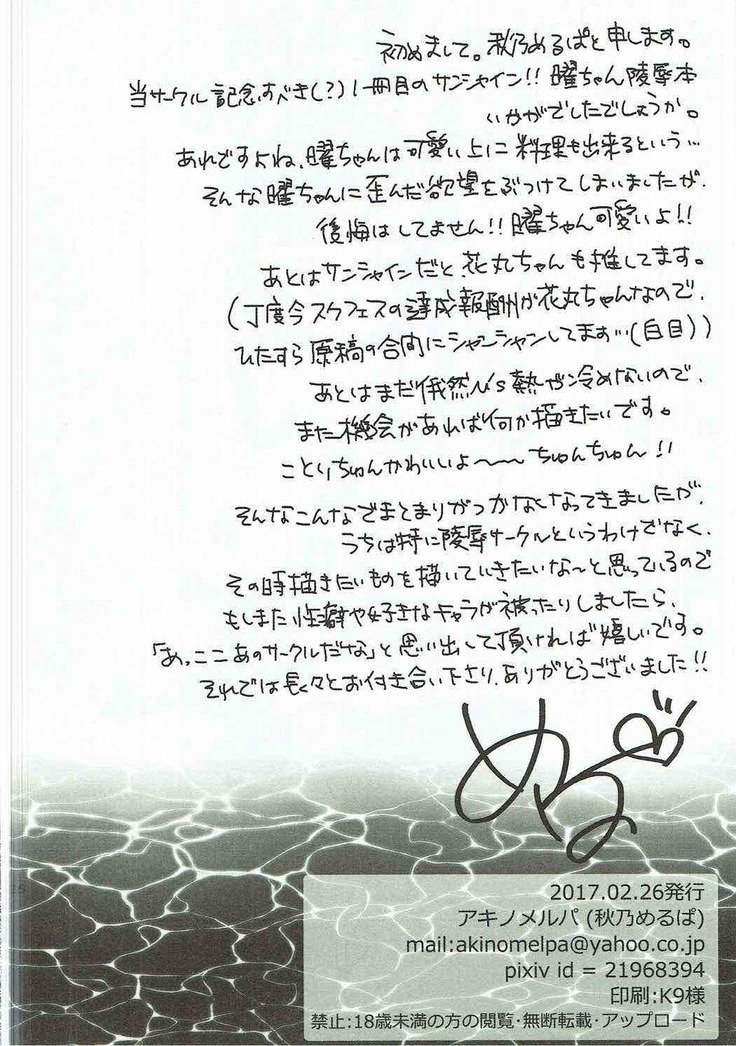 初めまして。秋乃めるぱと申します。
当サークル記念すべき(?)一冊目のサンシャイン!!曜ちゃん陵辱本
いかがでしたでしょうか。
あれですよね、曜ちゃんは可愛い上に料理も出来るという…
そんな曜ちゃんに歪んだ欲望をぶつけてしまいましたが、
後悔はしてません!!曜ちゃん可愛いよ!!
あとはサンシャインだと花丸ちゃんも推してます。
(丁度今スクフェスの達成報酬が花丸ちゃんなので、
ひたすら原稿の合間にシャンシャンしてます…(白目))
あとはまだ俄然μ's熱が冷めないので、
また機会があれば何か描きたいです。
ことりちゅんかわいいよ〜〜〜ちゅんちゅん!!
そんなこんなでまとまりがつかなくなってきましたが、
うちは特に陵辱サークルというわけでなく、
その時描きたいものを描いていきたいな〜と思っているので
もしまた性癖や好きなキャラが被ったりしましたら、
「あっここあのサークルだな」と思い出して頂ければ嬉しいです。
それでは長々とお付き合い下さり、ありがとうございました!!
める
2017.02.26発行
アキノメルパ (秋乃めるぱ)
mail:akinomelpa@yahoo.co.jp
pixiv id = 21968394
印刷:K9様
禁止:18歳未満の方の閲覧・無断転載・アップロード